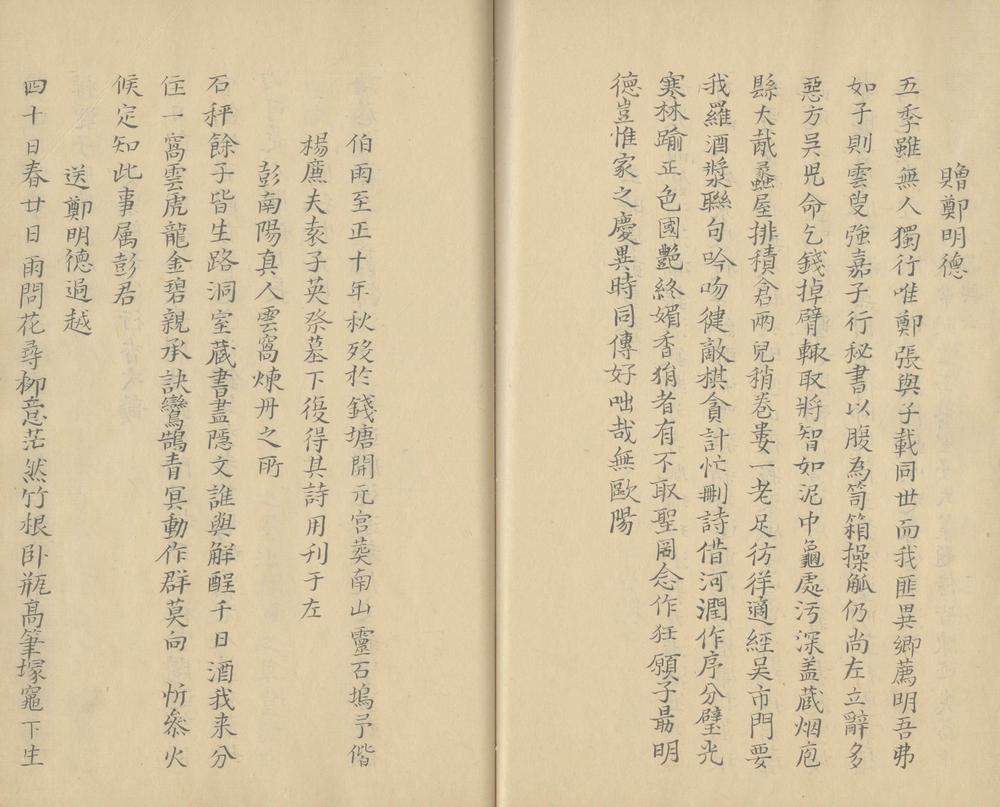 贈鄭明德
五季雖無人獨行唯鄭張與子載同世而我匪異鄉薦明吾弗
如子則雲叟強嘉子行秘書以腹為笥箱操觚仍尚左立辭多
惡方吳児命乞錢掉臂輙取將智如泥中龜處污深盖蔵烟庖
縣大哉蟊屋排積倉兩兒稍巻婁一老足彷徉適經吴市門要
我羅酒漿聯句吟吻健敵棋貪計忙刪詩借河潤作序分璧光
寒林踰正色國艶終媚香狷者有不取聖罔念作狂願子最明
德豈惟家之慶異時同傳好咄哉無歐陽
伯雨至正十年秋歿於錢塘開元宮葬南山靈石塢予偕
楊廉夫袁子英祭墓下復得其詩用刊于左
彭南陽真人雲窩煉丹之所
石秤餘子皆生路洞室蔵書盡隱文誰與觧酲千日酒我来分
住一窩雲虎龍金碧親承訣鸞鵠青冥動作群莫向 忻叅火
候定知此事属彭君
送鄭明德過越
四十日春廿日雨問花尋柳意茫然竹根卧瓶高筆塚竈下生